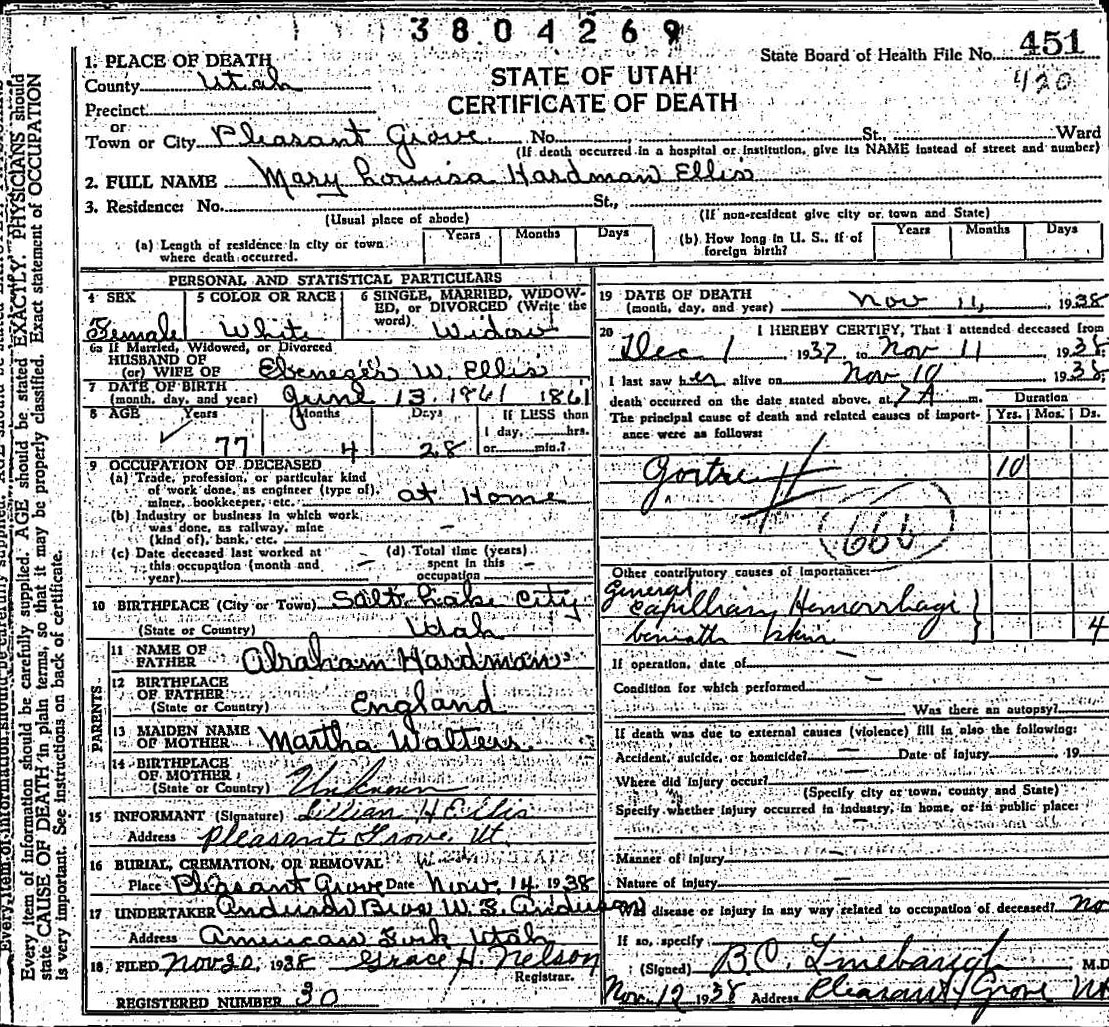 3804269
State Board of Health File No. 451
420
STATE OF UTAH
CERTIFICATE OF DEATH
1. PLACE OF DEATH
County Utah
Precinct
or
Town or City Pleasant Grove No. St., Ward
(If death occurred in a hospital or institution, give its NAME instead of street and number)
2. FULL NAME Mary Louisa Hardman Ellis
3. Residence: No. St.,
(Usual place of abode) (If non-resident give city or town and State)
(a) Length of residence in city or town where death occurred. Years Months Days
(b) How long in U. S., if of foreign birth? Years Months Days
PERSONAL AND STATISTICAL PARTICULARS
4 SEX
Female
5 COLOR OR RACE
White
6 SINGLE, MARRIED, WIDOWED, or DIVORCED (Write the word)
Widow
6a If Married, Widowed, or Divorced
HUSBAND OF
(or) WIFE OF Ebenezer W. Ellis
7 DATE OF BIRTH
(month, day, and year) June 13 1961 1861
8 AGE Years Months Days If LESS than
1 day, hrs.
77 4 28 or min.?
9 OCCUPATION OF DECEASED
(a) Trade, profession, or particular kind
of work done, as engineer (type of),
miner, bookkeeper, etc. at Home
(b) Industry or business in which work
was done, as railway, mine
(kind of), bank, etc. –
(c) Date deceased last worked at
this occupation (month and
year) –
(d) Total time (years)
spent in this
occupation –
10 BIRTHPLACE (City or Town) Salt Lake City
(State or Country) Utah
PARENTS
11 NAME OF
FATHER Abraham Hardman
12 BIRTHPLACE
OF FATHER
(State or Country) England
13 MAIDEN NAME
OF MOTHER Martha Walters
14 BIRTHPLACE
OF MOTHER
(State or Country) Unknown
15 INFORMANT (Signature) Lillian H Ellis
Address Pleasant Grove, Ut.
16 BURIAL, CREMATION, OR REMOVAL
Place Pleasant Grove Date Nov, 14, 1938
17 UNDERTAKER Anderson Bros W. S. Anderson
Address American Fork Utah
18 FILED Nov 20, 1938 Grace H. Nelson
Registrar.
REGISTERED NUMBER 30
19 DATE OF DEATH
(month, day, and year) Nov 11, 1938
20 I HEREBY CERTIFY, That I attended deceased from
Dec 1 1937 to Nov 11 1938:
I last saw her alive on Nov 10 1938
death occurred on the date stated above, at 7 A m.
Duration
Yrs. Mos. Ds.
The principal cause of death and related causes of importance were as follows:
Goitre 10
66b
Other contributory causes of importance:
General
Capilliary Hemorrhage }
beneath skin } 4
If operation, date of –
Condition for which performed –
Was there an autopsy?
If death was due to external causes (violence) fill in also the following:
Accident, suicide, or homicide? – Date of injury , 19
Where did injury occur? –
(Specify city or town, county and State)
Specify whether injury occurred in industry, in home, or in public place:
–
Manner of injury –
Nature of injury –
Was disease or injury in any way related to occupation of deceased? No
If so, specify
(Signed) B. O. Linebaugh M.D
Nov. 12 1938 Address Pleasant Grove Ut
Every item of information should be carefully supplied. AGE should be stated EXACTLY. PHYSICIANS should
state CAUSE OF DEATH in plain terms, so that it may be properly classified. Exact statement of OCCUPATION
is very important. See instructions on back of certificate.